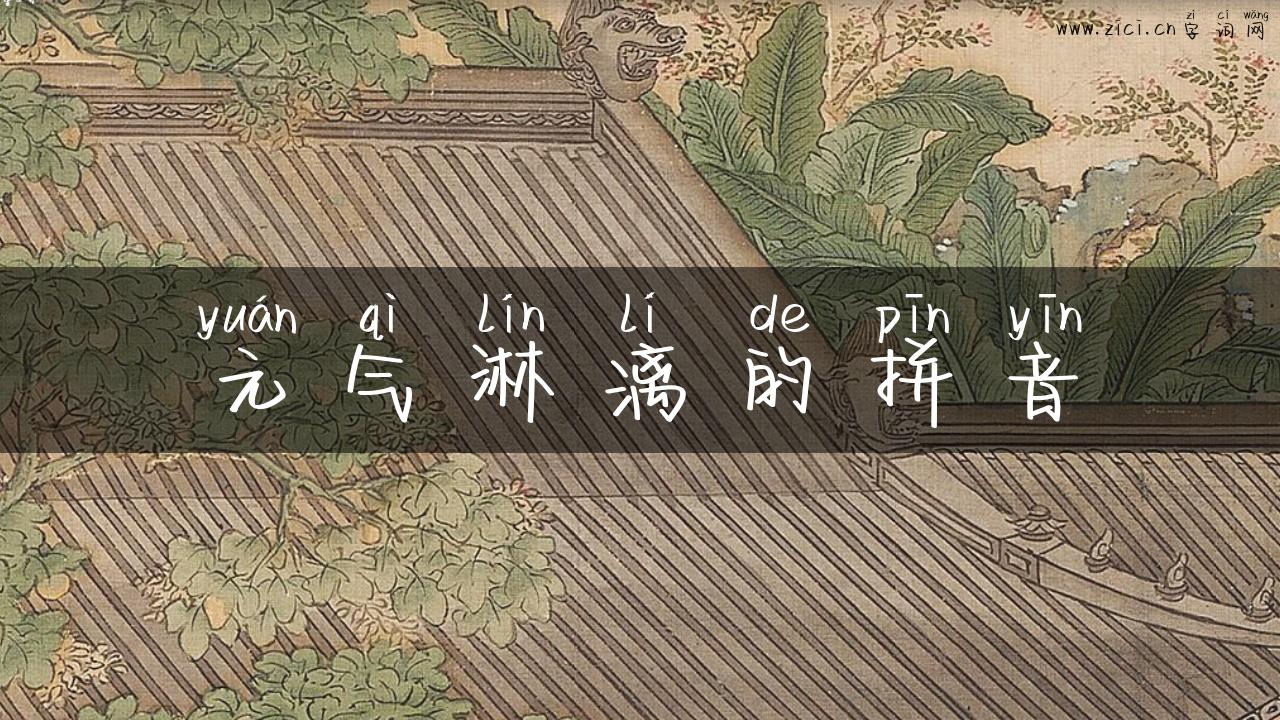 zì cí wǎng
www.zici.cn 字词网
yuán qì lín lí de pīn yīn
元气淋漓的拼音